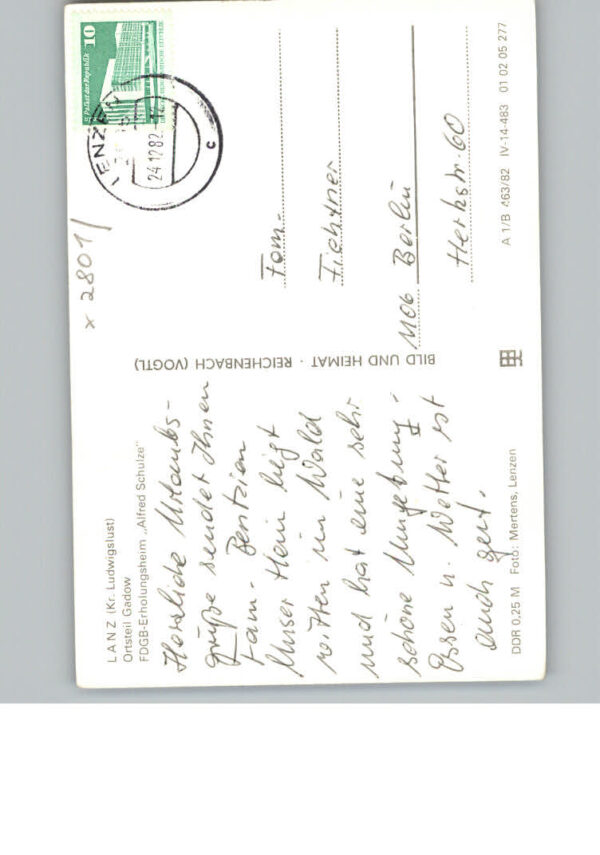 LANZ (Kr. Ludwigslust)
Ortsteil Gadow
FDGB-Erholungsheim „Alfred Schulze"
Herzliche Urlaubs-
grüße sendet Ihnen
Fam. Bentzien
Unser Heim liegt
mitten im Wald
und hat eine sehr
schöne Umgebung.
Essen u. Wetter ist
auch gut.
DDR 0,25 M Foto: Mertens, Lenzen
BILD UND HEIMAT · REICHENBACH (VOGTL)
x 2801/
10
Palast der Republik
LENZEN
24.12.82
c
Fam.
Fichtner
1106 Berlin
Herbststr. 60
A 1/B 463/82 IV-14-483 01 02 05 277